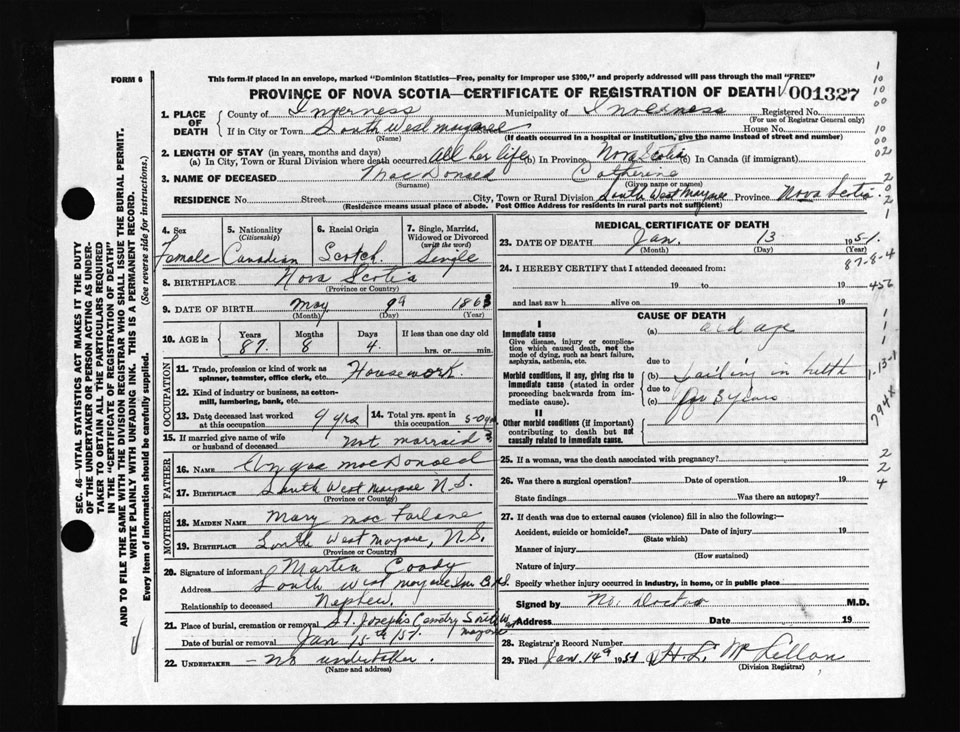 FORM 6
This form if placed in an envelope, marked "Dominion Statistics—Free, penalty for improper use $300," and properly addressed will pass through the mail "FREE"
PROVINCE OF NOVA SCOTIA—CERTIFICATE OF REGISTRATION OF DEATH 001327
1. PLACE OF DEATH County of Inverness Municipality of Inverness Registered No.
(For use of Registrar General only)
If in City or Town South West margaree House No.
(Name) (If death occurred in a hospital or institution, give the name instead of street and number)
2. LENGTH OF STAY (in years, months and days)
(a) In City, Town or Rural Division where death occurred All her life (b) In Province Nova Scotia (c) In Canada (if immigrant)
3. NAME OF DECEASED MacDonald Catherine
(Surname) (Given name or names)
RESIDENCE No. Street City, Town or Rural Division South West Margaree Province Nova Scotia
(Residence means usual place of abode. Post Office Address for residents in rural parts not sufficient)
4. Sex Female
5. Nationality (Citizenship) Canadian
6. Racial Origin Scotch
7. Single, Married, Widowed or Divorced (write the word) Single
8. BIRTHPLACE Nova Scotia
(Province or Country)
9. DATE OF BIRTH May 9 1863
(Month) (Day) (Year)
10. AGE in Years 87 Months 8 Days 4 If less than one day old hrs. or min.
OCCUPATION
11. Trade, profession or kind of work as spinner, teamster, office clerk, etc. Housework
12. Kind of industry or business, as cotton-mill, lumbering, bank, etc.
13. Date deceased last worked at this occupation 9 yrs
14. Total yrs. spent in this occupation 50 yrs
15. If married give name of wife or husband of deceased Not marraid
FATHER
16. NAME Angus MacDonald
17. BIRTHPLACE South West Margaree N.S.
(Province or Country)
MOTHER
18. MAIDEN NAME Mary mac Farlane
19. BIRTHPLACE South West Margaree, N.S.
(Province or Country)
20. Signature of informant Martin Coady
Address South West margaree
Relationship to deceased Nephew
21. Place of burial, cremation or removal St. Josephs South West margaree
Date of burial or removal Jan 15th/51
22. UNDERTAKER —no undertaker.
(Name and address)
MEDICAL CERTIFICATE OF DEATH
23. DATE OF DEATH Jan. 13 1951.
(Month) (Day) (Year)
87-8-4
24. I HEREBY CERTIFY that I attended deceased from:
19 to 19
456
and last saw h alive on 19
CAUSE OF DEATH
I
Immediate cause
Give disease, injury or complication which caused death, not the mode of dying, such as heart failure, asphyxia, asthenia, etc.
(a) old age
due to
Morbid conditions, if any, giving rise to immediate cause (stated in order proceeding backwards from immediate cause).
(b) failing in helth
due to
(c) for 3 years
II
Other morbid conditions (if important) contributing to death but not causally related to immediate cause.
1-13-1
794X
25. If a woman, was the death associated with pregnancy?
26. Was there a surgical operation? Date of operation 19
State findings Was there an autopsy?
27. If death was due to external causes (violence) fill in also the following:—
Accident, suicide or homicide? Date of injury 19
(State which)
Manner of injury
(How sustained)
Nature of injury
Specify whether injury occurred in industry, in home, or in public place
Signed by No Doctor M.D.
Address Date 19
28. Registrar's Record Number
29. Filed Jan. 14 1951 H. L. McLellan
(Division Registrar)
SEC. 46—VITAL STATISTICS ACT MAKES IT THE DUTY OF THE UNDERTAKER OR PERSON ACTING AS UNDERTAKER TO OBTAIN ALL THE PARTICULARS REQUIRED IN THE "CERTIFICATE OF REGISTRATION OF DEATH" AND TO FILE THE SAME WITH THE DIVISION REGISTRAR WHO SHALL ISSUE THE BURIAL PERMIT.
WRITE PLAINLY WITH UNFADING INK. THIS IS A PERMANENT RECORD.
Every item of information should be carefully supplied. (See reverse side for instructions.)